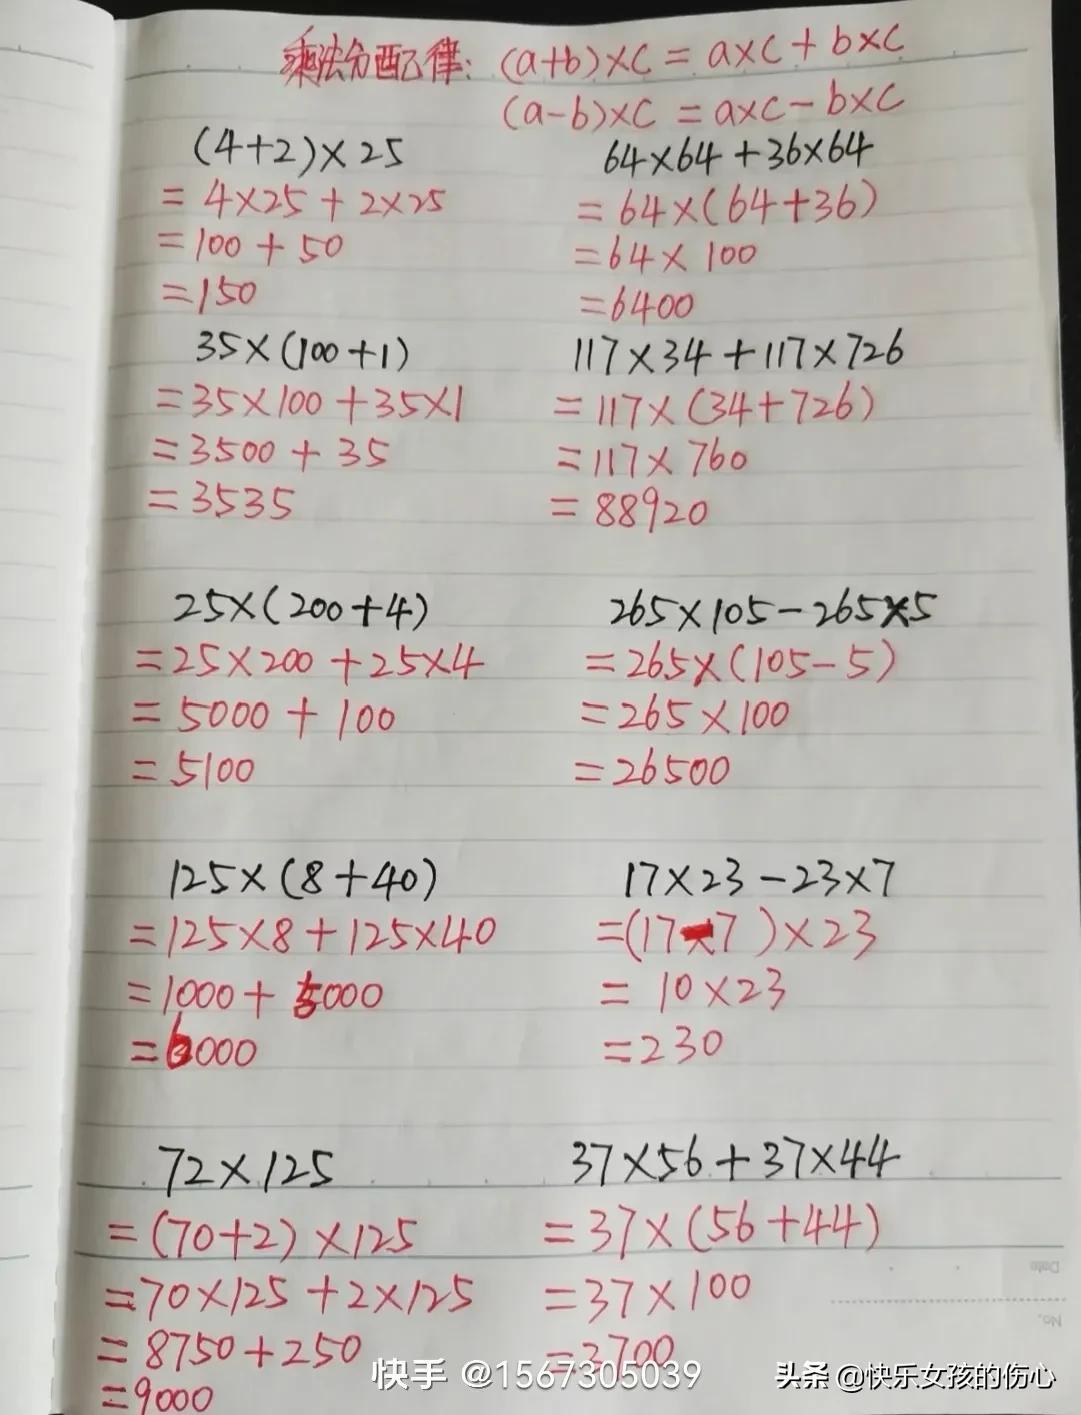 乘法分配律: (a+b)×c = a×c + b×c
(a-b)×c = a×c - b×c
(4+2)×25
= 4×25 + 2×25
= 100 + 50
= 150
64×64 + 36×64
= 64×(64+36)
= 64 × 100
= 6400
35×(100+1)
= 35×100 + 35×1
= 3500 + 35
= 3535
117×34 + 117×726
= 117×(34+726)
= 117×760
= 88920
25×(200+4)
= 25×200 + 25×4
= 5000 + 100
= 5100
265×105 - 265×5
= 265×(105-5)
= 265×100
= 26500
125×(8+40)
= 125×8 + 125×40
= 1000 + 5000
= 6000
17×23 - 23×7
= (17-7)×23
= 10×23
= 230
72×125
= (70+2)×125
= 70×125 + 2×125
= 8750 + 250
= 9000
37×56 + 37×44
= 37×(56+44)
= 37×100
= 3700
Date
No.
快手 @1567305039
头条 @快乐女孩的伤心